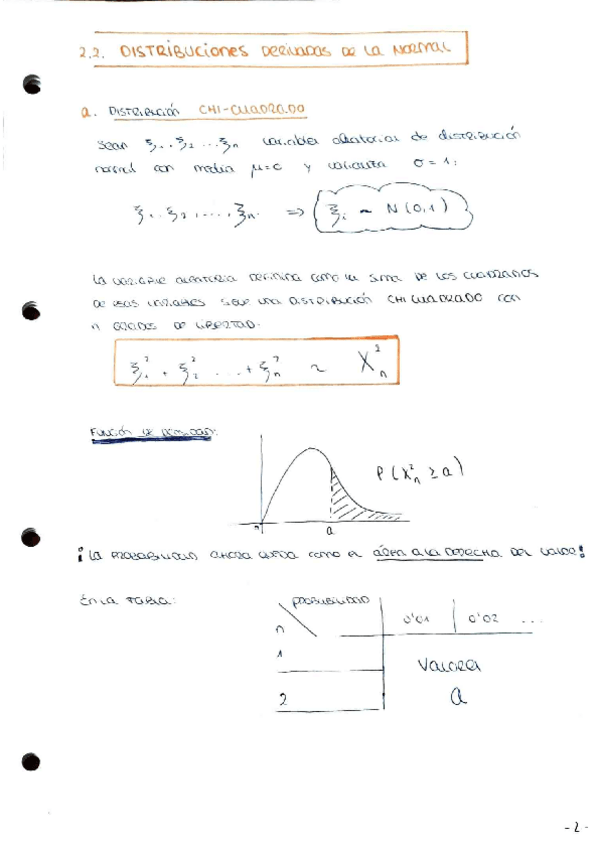 2.2. DISTRIBUCIONES DERIVADAS DE LA NORMAL
a. DISTRIBUCIÓN CHI-CUADRADO
Sean ξ₁, ξ₂ ... ξn variables aleatorias de distribución
normal con media μ=0 y varianza σ=1:
ξ₁, ξ₂, ..., ξn. => ξi ~ N(0,1)
LA VARIABLE ALEATORIA DEFINIDA COMO LA SUMA DE LOS CUADRADOS
DE ESAS VARIABLES SIGUE UNA DISTRIBUCIÓN CHI CUADRADO CON
n GRADOS DE LIBERTAD.
ξ₁² + ξ₂² ... + ξn² ~ X²n
FUNCIÓN DE DENSIDAD:
P(X²n ≥ a)
a
¡LA PROBABILIDAD AHORA QUEDA COMO EL ÁREA A LA DERECHA DEL VALOR!
EN LA TABLA:
PROBABILIDAD
n
0'01 0'02 ...
1
Valores
2 a
- 2 -